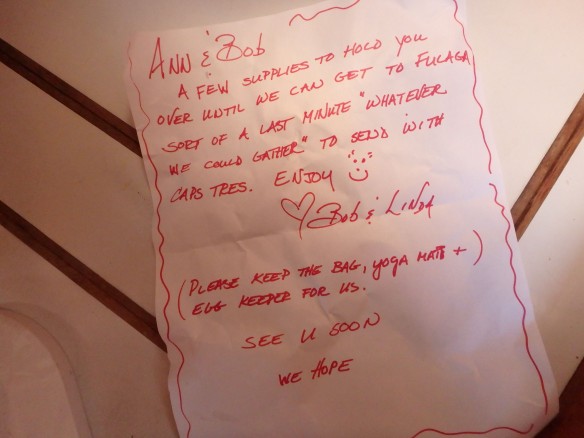 ANN & BOB
A FEW SUPPLIES TO HOLD YOU
OVER UNTIL WE CAN GET TO FULAGA
SORT OF A LAST MINUTE "WHATEVER
WE COULD GATHER" TO SEND WITH
CAPS TRES. ENJOY
BOB & LINDA
(PLEASE KEEP THE BAG, YOGA MATS +)
EGG KEEPER FOR US.
SEE U SOON
WE HOPE